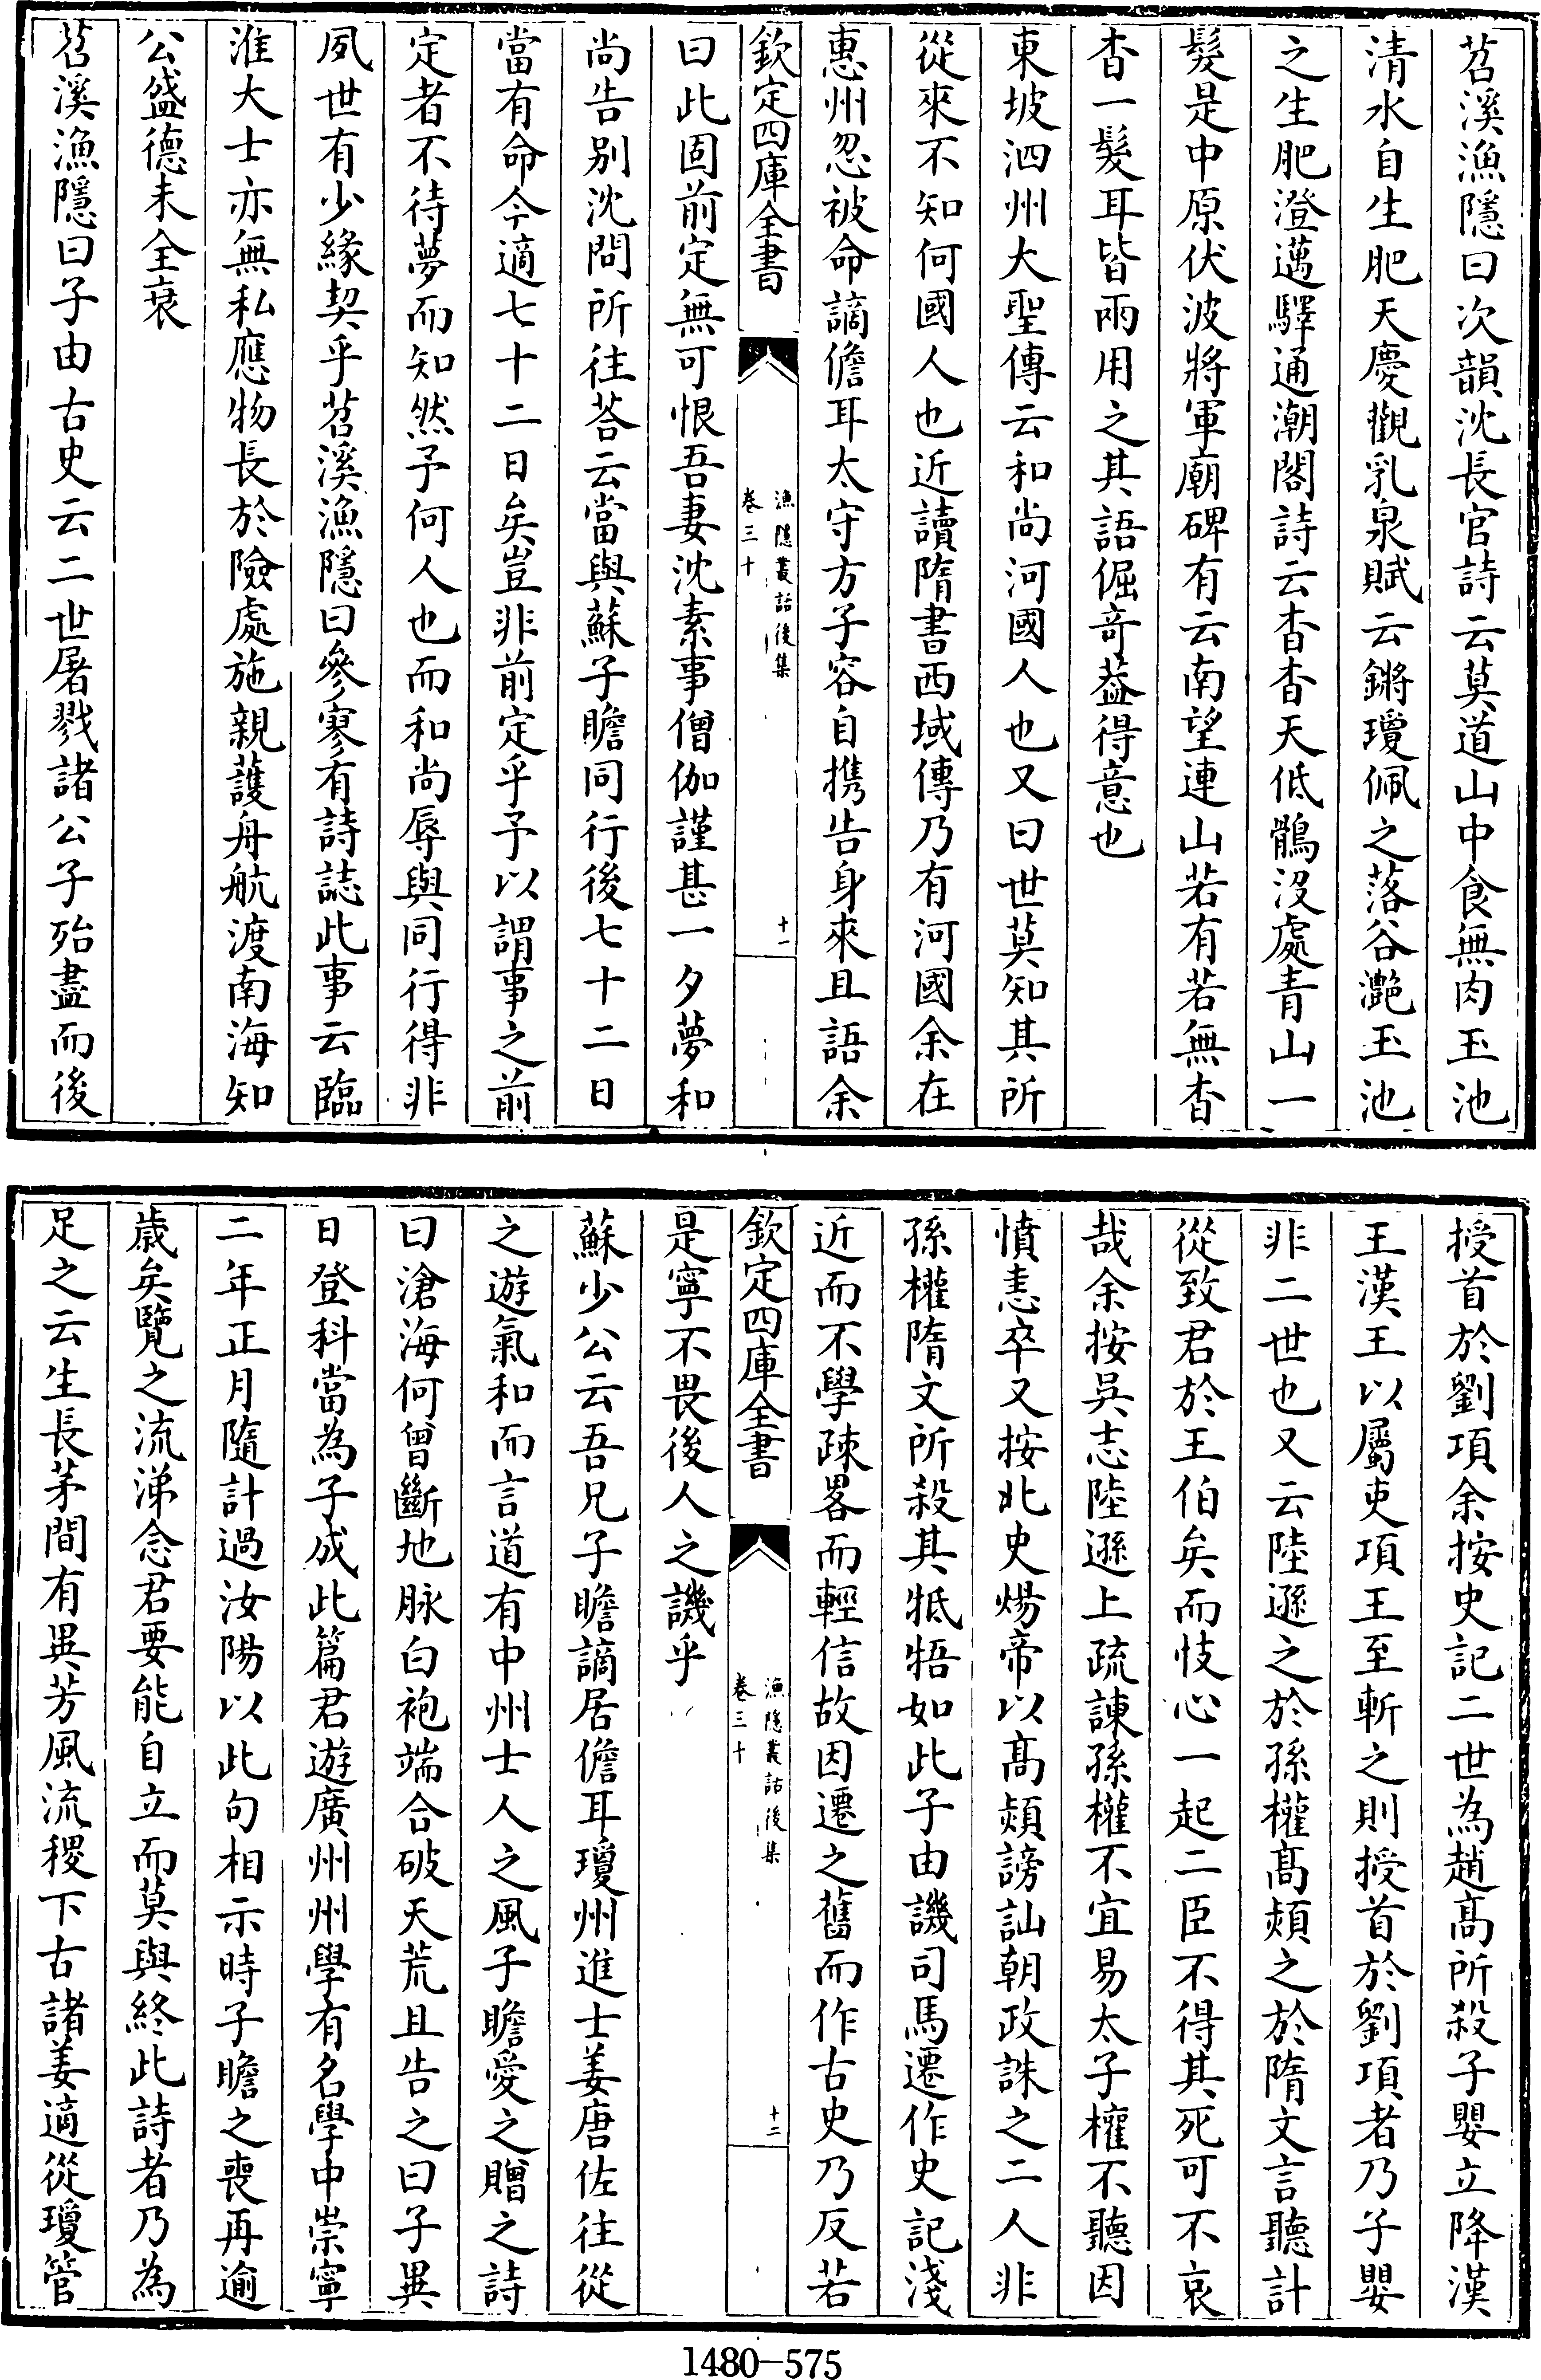 苕溪漁隱曰次韻沈長官詩云莫道山中食無肉玉池
清水自生肥天慶觀乳泉賦云鏘瓊佩之落谷灔玉池
之生肥澄邁驛通潮閣詩云杳杳天低鶻沒處青山一
髮是中原伏波將軍廟碑有云南望連山若有若無杳
杳一髮耳皆兩用之其語倔奇葢得意也
東坡泗州大聖傳云和尚河國人也又曰世莫知其所
從來不知何國人也近讀隋書西域傳乃有河國余在
惠州忽被命謫儋耳太守方子容自携告身來且語余
欽定四庫全書
漁隱叢話後集
卷三十
十一
曰此固前定無可恨吾妻沈素事僧伽謹甚一夕夢和
尚告别沈問所往荅云當與蘇子瞻同行後七十二日
當有命今適七十二日矣豈非前定乎予以謂事之前
定者不待夢而知然予何人也而和尚辱與同行得非
夙世有少緣契乎苕溪漁隱曰參寥有詩誌此事云臨
淮大士亦無私應物長於險處施親護舟航渡南海知
公盛德未全衰
苕溪漁隱曰子由古史云二世屠戮諸公子殆盡而後
授首於劉項余按史記二世為趙髙所殺子嬰立降漢
王漢王以屬吏項王至斬之則授首於劉項者乃子嬰
非二世也又云陸遜之於孫權髙熲之於隋文言聽計
從致君於王伯矣而忮心一起二臣不得其死可不哀
哉余按吳志陸遜上疏諫孫權不宜易太子權不聽因
憤恚卒又按北史煬帝以髙熲謗訕朝政誅之二人非
孫權隋文所殺其牴牾如此子由譏司馬遷作史記淺
近而不學疎畧而輕信故因遷之舊而作古史乃反若
欽定四庫全書
漁隱叢話後集
卷三十
十二
是寧不畏後人之譏乎
蘇少公云吾兄子瞻謫居儋耳瓊州進士姜唐佐往從
之遊氣和而言道有中州士人之風子瞻愛之贈之詩
曰滄海何曾斷地脉白袍端合破天荒且告之曰子異
日登科當為子成此篇君遊廣州州學有名學中崇寧
二年正月隨計過汝陽以此句相示時子瞻之喪再逾
歲矣覽之流涕念君要能自立而莫與終此詩者乃為
足之云生長茅間有異芳風流稷下古諸姜適從瓊管
1480-575